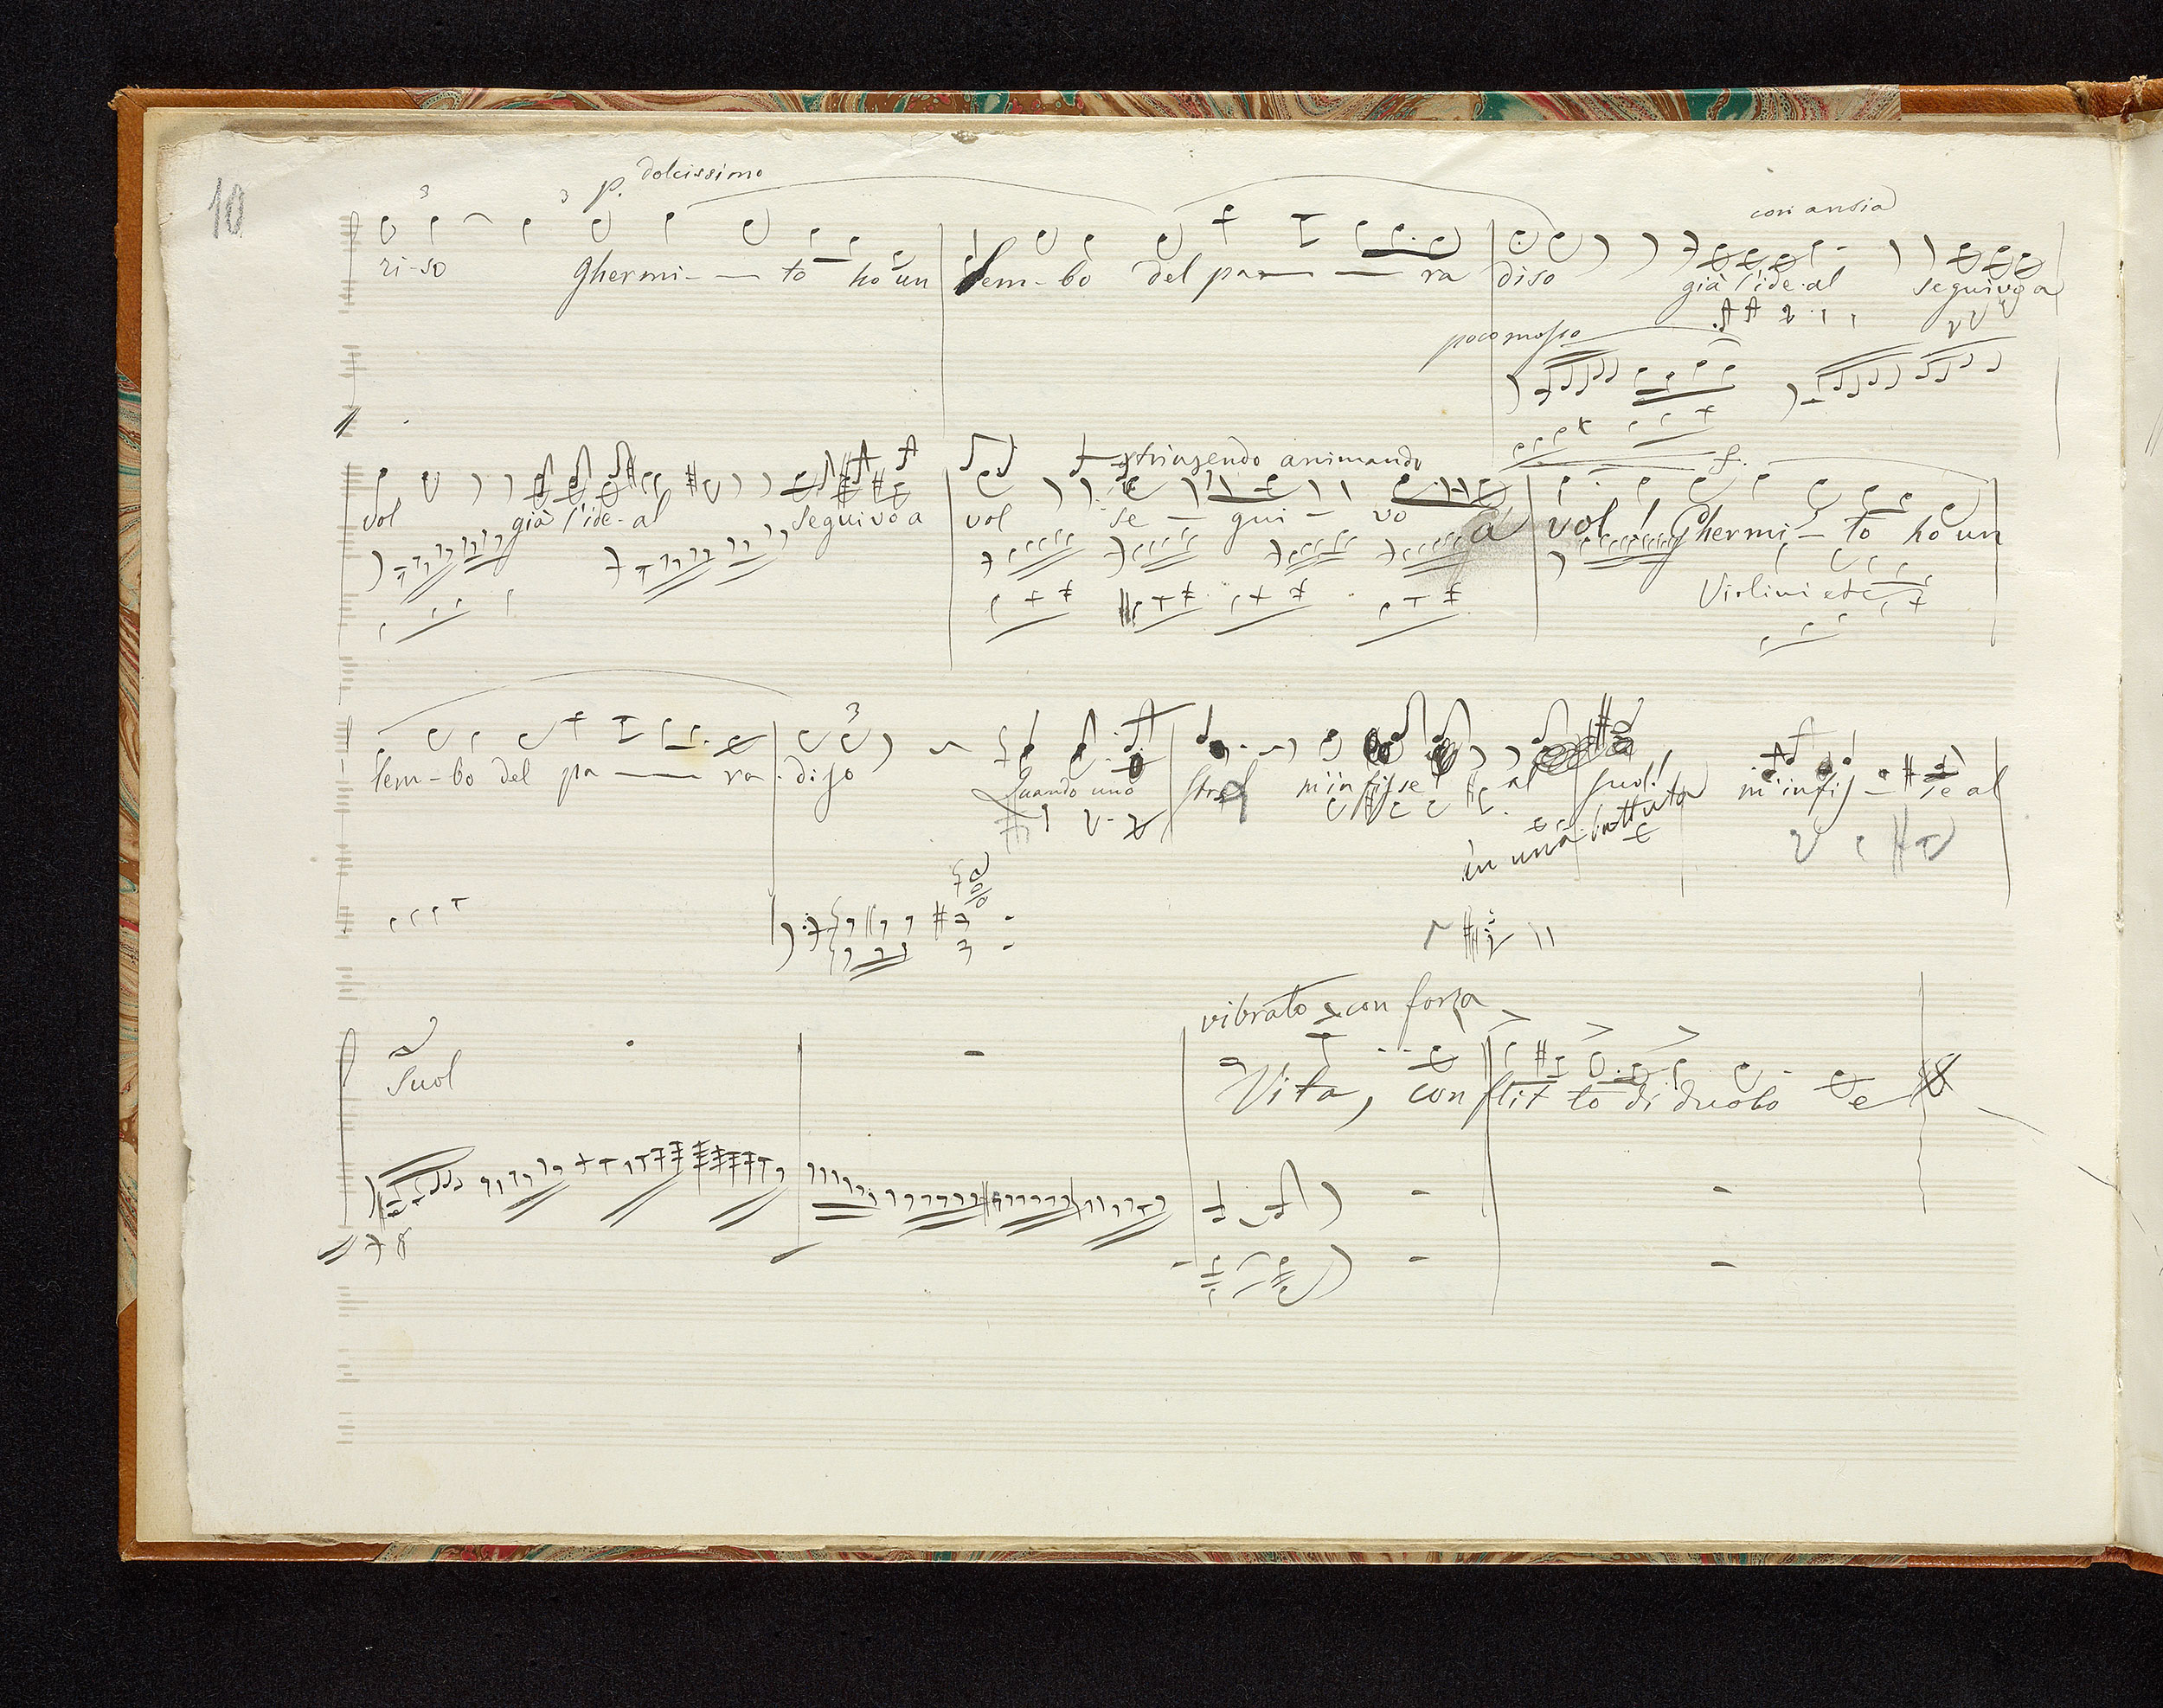 10
p. dolcissimo
con ansia
ri-so Ghermi- to ho un lem-bo del pa ra diso già l'ide-al seguivo a
poco mosso
stringendo animando f.
vol già l'ide-al seguivo a vol se - gui - vo a vol! Ghermi - to ho un
Violini etc
3
lem-bo del pa ra-diso Quando uno stral m'infisse al suol! m'infis - se al
in una battuta
vibrato e con forza
Suol Vita, conflit to di duolo e